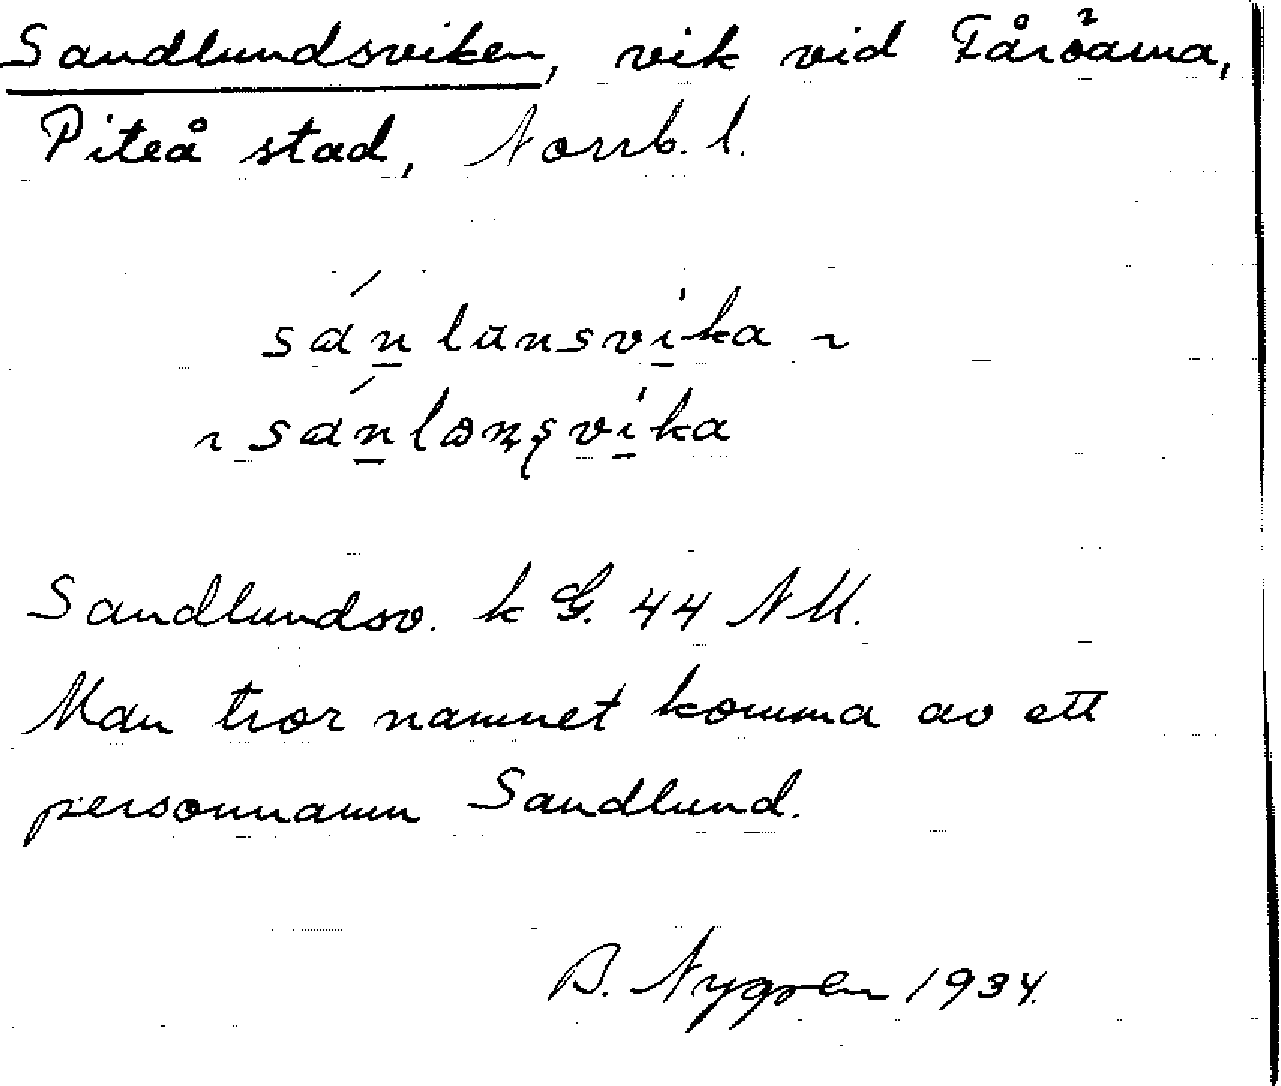 Sandlundsviken, vik vid Fåröarna,
Piteå stad, Norrb. l.
sánlunsvika ~
~ sánlonsvika
Sandlundsv. k G. 44 NU.
Man tror namnet komma av ett
personnamn Sandlund.
B. Nygren 1934.